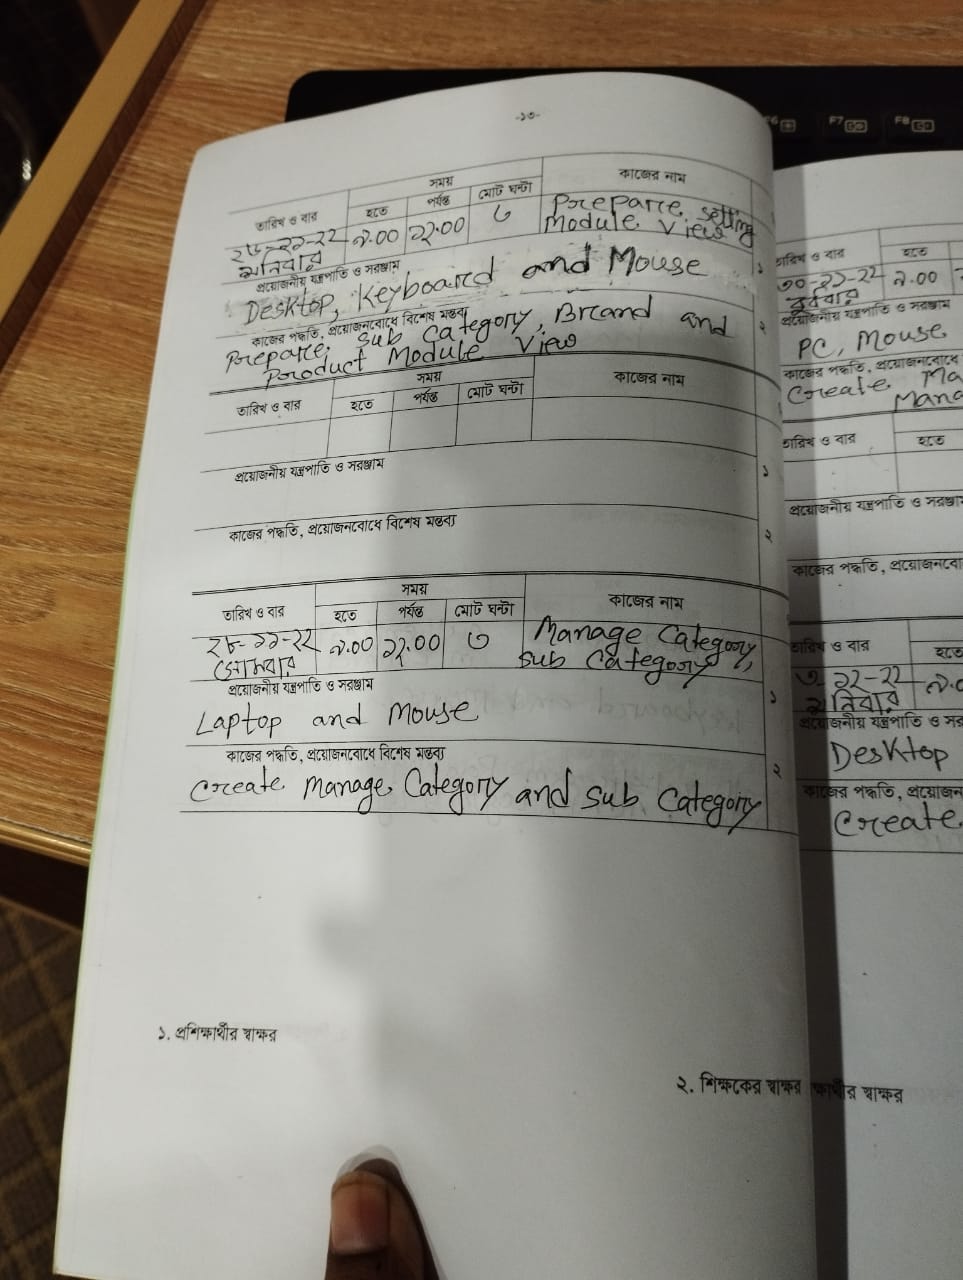 -১৩-
তারিখ ও বার
সময়
হতে
পর্যন্ত
মোট ঘন্টা
কাজের নাম
২৬-১১-২২
শনিবার
৯.০০
১২.০০
৩
Prepare setting
Module View
প্রয়োজনীয় যন্ত্রপাতি ও সরঞ্জাম
১
Desktop, Keyboard and Mouse
কাজের পদ্ধতি, প্রয়োজনবোধে বিশেষ মন্তব্য
২
Prepare Sub Category, Brand and
Product Module View
তারিখ ও বার
সময়
হতে
পর্যন্ত
মোট ঘন্টা
কাজের নাম
প্রয়োজনীয় যন্ত্রপাতি ও সরঞ্জাম
১
কাজের পদ্ধতি, প্রয়োজনবোধে বিশেষ মন্তব্য
২
তারিখ ও বার
সময়
হতে
পর্যন্ত
মোট ঘন্টা
কাজের নাম
২৮-১১-২২
সোমবার
৯.০০
১২.০০
৩
Manage Category,
Sub Category
প্রয়োজনীয় যন্ত্রপাতি ও সরঞ্জাম
১
Laptop and Mouse
কাজের পদ্ধতি, প্রয়োজনবোধে বিশেষ মন্তব্য
২
Create Manage Category and Sub Category
১. প্রশিক্ষার্থীর স্বাক্ষর
২. শিক্ষকের স্বাক্ষর
F7
F8
তারিখ ও বার
হতে
৩০-১১-২২
বুধবার
৯.০০
প্রয়োজনীয় যন্ত্রপাতি ও সরঞ্জাম
PC, Mouse
কাজের পদ্ধতি, প্রয়োজনবোধে
Create Ma
Mana
তারিখ ও বার
হতে
প্রয়োজনীয় যন্ত্রপাতি ও সরঞ্জা
কাজের পদ্ধতি, প্রয়োজনবো
তারিখ ও বার
হতে
১২-২২
শনিবার
৯.০
প্রয়োজনীয় যন্ত্রপাতি ও সর
Desktop
কাজের পদ্ধতি, প্রয়োজন
Create
স্বাক্ষর